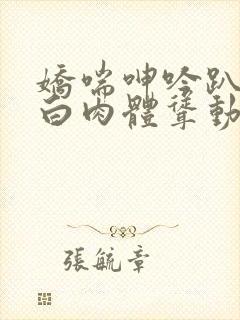 嬌喘呻吟趴
白肉體聳動
張毓章